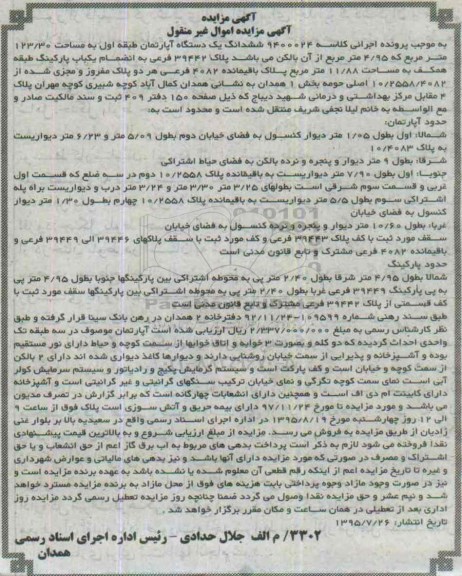 آگهی مزایده
آگهی مزایده اموال غیر منقول
به موجب پرونده اجرائی کلاسه ۹۴۰۰۰۲۴ ششدانگ یک دستگاه آپارتمان طبقه اول به مساحت ۱۲۳/۳۰
متر مربع که ۴/۹۵ متر مربع از آن بالکن می باشد پلاک ۳۹۴۴۲ فرعی به انضمام یکباب پارکینگ طبقه
همکف به مساحت ۱۱/۸۸ متر مربع پلاک باقیمانده ۴۰۸۲ فرعی هر دو پلاک مفروز و مجزی شده از
۱۰/۲۵۵۸/۴۰۸۲ اصلی حومه بخش ۱ همدان به نشانی همدان کمال آباد کوچه شبیری کوچه مهران پلاک
۴ مقابل مرکز بهداشتی و درمانی شهید دیباج که ذیل صفحه ۱۵۰ دفتر ۴۰۹ ثبت و سند مالکیت صادر و
مع الواسطه به خانم لیلا نجفی شریف منتقل شده است و محدود است به:
حدود آپارتمان:
شمالا: اول بطول ۱/۰۵ متر دیوار کنسول به فضای خیابان دوم بطول ۵/۰۹ متر و ۶/۲۳ متر دیواریست
به پلاک ۱۰/۴۰۸۳
شرقا: بطول ۹ متر دیوار و پنجره و نرده بالکن به فضای حیاط اشتراکی
جنوبا: اول بطول ۷/۹۰ متر دیواریست به باقیمانده پلاک ۱۰/۲۵۵۸ دوم در سه ضلع که قسمت اول
غربی و قسمت سوم شرقی است بطولهای ۳/۲۵ متر ۳/۳۰ متر و ۳/۲۴ متر درب و دیواریست به راه پله
اشتراکی سوم بطول ۵/۵ متر دیواریست به باقیمانده پلاک ۱۰/۲۵۵۸ چهارم بطول ۱/۳۰ متر دیوار
کنسول به فضای خیابان
غربا: بطول ۱۰/۶۰ متر دیوار و پنجره و نرده کنسول به فضای خیابان
سقف مورد ثبت با کف پلاک ۳۹۴۴۳ فرعی و کف مورد ثبت با سقف پلاکهای ۳۹۴۴۶ الی ۳۹۴۴۹ فرعی و
باقیمانده ۴۰۸۲ فرعی مشترک و تابع قانون مدنی است
حدود پارکینگ
شمالا بطول ۴/۹۵ متر شرقا بطول ۲/۴۰ متر پی به محوطه اشتراکی بین پارکینگها جنوبا بطول ۴/۹۵ متر پی
به پی پارکینگ ۳۹۴۴۹ فرعی غربا بطول ۲/۴۰ متر پی به محوطه اشتراکی بین پارکینگها سقف مورد ثبت با
کف قسمتی از پلاک ۳۹۴۴۲ فرعی مشترک و تابع قانون مدنی است
طبق سند رهنی شماره ۱۰۹۵۹۹-۹۲/۱۱/۲۴ دفترخانه ۲ همدان در رهن بانک سینا قرار گرفته و طبق
نظر کارشناس رسمی به مبلغ ۲/۳۳۷/۰۰۰/۰۰۰ ریال ارزیابی شده است آپارتمان موصوف در سه طبقه تک
واحدی احداث گردیده که دو کله و بصورت ۳ خوابه و اتاق خوابها از سمت کوچه و حیاط دارای نور مستقیم
بوده و آشپزخانه و پذیرایی از سمت خیابان روشنایی دارند و دیوارها کاغذ دیواری شده اند دارای ۲ بالکن
از سمت کوچه و خیابان است و کف پارکت است و سیستم گرمایش پکیج و رادیاتور و سیستم سرمایش کولر
آبی است نمای سمت کوچه نگرگی و نمای خیابان ترکیب سنگهای گرانیتی و غیر گرانیتی است و آشپزخانه
دارای کابینت ام دی اف است و همچنین دارای انشعابات چهارگانه است که برابر گزارش در تصرف مدیون
می باشد و مورد مزایده تا مورخ ۹۷/۱۱/۲۴ دارای بیمه حریق و آتش سوزی است پلاک فوق از ساعت ۹
الی ۱۲ روز چهارشنبه مورخ ۱۳۹۵/۸/۱۹ در اداره اجرای اسناد رسمی واقع در سعیدیه بالا بر بلوار غنی
زادیان از طریق مزایده به فروش می رسد. مزایده از مبلغ ارزیابی شروع و به بالاترین قیمت پیشنهادی
نقدا فروخته می شود لازم به ذکر است پرداخت بدهی های مربوط به آب برق گاز اعم از حق انشعاب و یا حق
اشتراک و مصرف در صورتی که مورد مزایده دارای آنها باشد و نیز بدهی های مالیاتی و عوارض شهرداری
و غیره تا تاریخ مزایده اعم از اینکه رقم قطعی آن معلوم شده یا نشده باشد به عهده برنده مزایده است و
نیز در صورت وجود مازاد وجوه پرداختی بابت هزینه های فوق از محل مازاد به برنده مزایده مسترد خواهد
شد و نیم عشر و حق مزایده نقدا وصول می گردد ضمنا چنانچه روز مزایده تعطیل رسمی گردد مزایده روز
اداری بعد از تعطیلی در همان ساعت و مکان مقرر برگزار خواهد شد.
تاریخ انتشار: ۱۳۹۵/۷/۲۶
۳۳۰۲/ م الف جلال حدادی - رئیس اداره اجرای اسناد رسمی
همدان